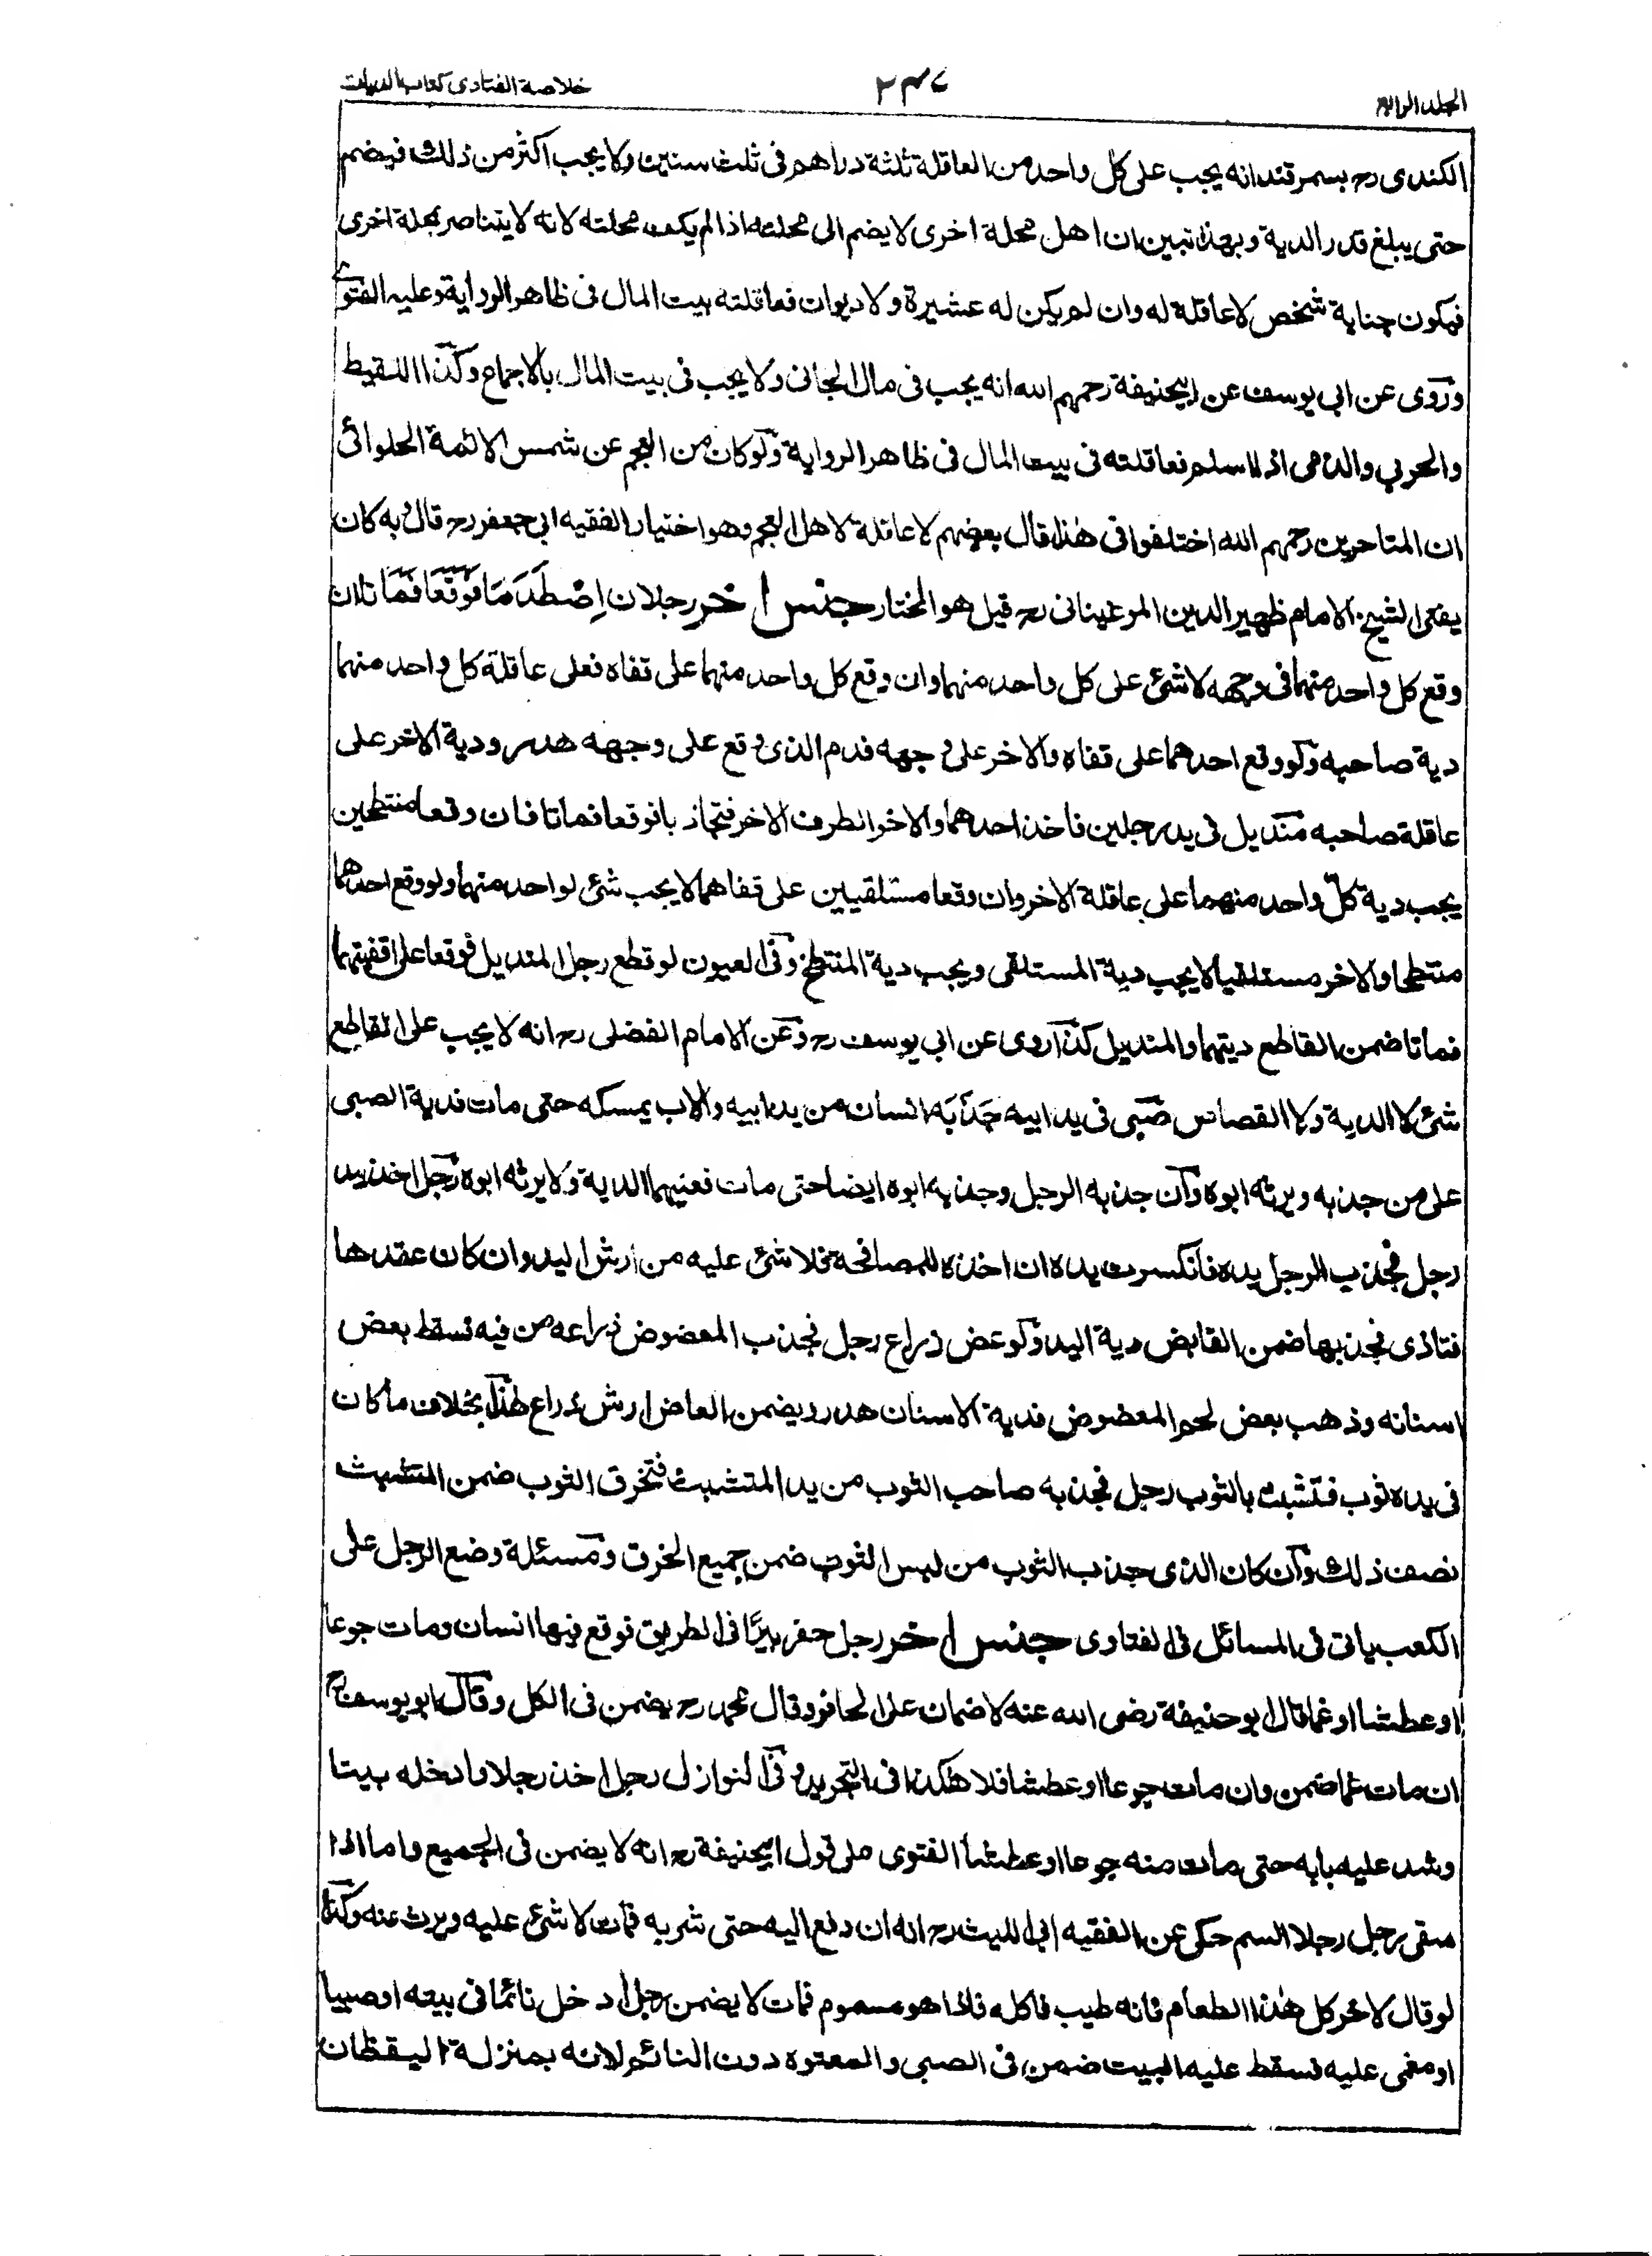 الجلد الرابع
٢٤٧
خلاصة الفتاوى كتاب الديات
الكندى رح بسمرقند انه يجب على كل واحد من العاقلة ثلثة دراهم فى ثلث سنين ولا يجب اكثر من ذلك فيضم
حتى يبلغ قدر الدية وبهذا تبين ان اهل محلة اخرى لا يضم الى محلته اذا لم يكف محلته لانه لا يتناصر بمحلة اخرى
فيكون جناية شخص لا عاقلة له وان لم يكن له عشيرة ولا ديوان فعاقلته بيت المال فى ظاهر الرواية وعليه الفتوى
وروى عن ابى يوسف عن ابيحنيفة رحمهم الله انه يجب فى مال الجانى ولا يجب فى بيت المال بالاجماع وكذا اللقيط
والحربي والذمى اذا اسلم فعاقلته فى بيت المال فى ظاهر الرواية ولو كان من العجم عن شمس الائمة الحلوائى
ان المتاخرين رحمهم الله اختلفوا فى هذا قال بعضهم لا عاقلة لاهل العجم وهو اختيار الفقيه ابى جعفر رح قال وبه كان
يفتى الشيخ الامام ظهير الدين المرغينانى رح قيل هو المختار جنس اخر رجلان اِصْطَدَمَا فَوَقَعَا فَمَاتَا ان
وقع كل واحد منهما فى وجهه لا شئ على كل واحد منهما وان وقع كل واحد منهما على قفاه فعلى عاقلة كل واحد منهما
دية صاحبه ولو وقع احدهما على قفاه والاخر على وجهه فدم الذى وقع على وجهه هدر ودية الاخر على
عاقلة صاحبه منديل فى يد رجلين فاخذ احدهما والاخر الطرف الاخر فتجاذبا فوقعا فماتا فان وقعا منتطحين
يجب دية كل واحد منهما على عاقلة الاخر وان وقعا مستلقيين على قفاهما لا يجب شئ لواحد منهما ولو وقع احدهما
منتطحا والاخر مستلقيا لا يجب دية المستلقى ويجب دية المنتطح وفى العيون لو قطع رجل المنديل فوقعا على اقفيتهما
فماتا ضمن القاطع ديتهما والمنديل كذا روى عن ابى يوسف رح وعن الامام الفضلى رح انه لا يجب على القاطع
شئ لا الدية ولا القصاص صبى فى يد ابيه جَذَبَه انسان من يد ابيه والاب يمسكه حتى مات فدية الصبى
على من جذبه ويرثه ابوه وان جذبه الرجل وجذبه ابوه ايضا حتى مات فعليهما الدية ولا يرثه ابوه رجل اخذ يد
رجل فجذب الرجل يده فانكسرت يده ان اخذه للمصافحة فلا شئ عليه من ارش اليد وان كان عقدها
فتاذى فجذبها ضمن القابض دية اليد ولو عض ذراع رجل فجذب المعضوض ذراعه من فيه فسقط بعض
اسنانه وذهب بعض لحم المعضوض فدية الاسنان هدر ويضمن العاض ارش ذراع هذا بخلاف ما كان
فى يده ثوب فتشبث بالثوب رجل فجذبه صاحب الثوب من يد المتشبث فتخرق الثوب ضمن المتشبث
نصف ذلك وان كان الذى جذب الثوب من لبس الثوب ضمن جميع الخرق ومسئلة وضع الرجل على
الكعب ياتى فى المسائل فى الفتاوى جنس اخر رجل حفر بيرًا فى الطريق فوقع فيها انسان ومات جوعا
او عطشا او غما قال ابو حنيفة رضى الله عنه لا ضمان على الحافر وقال محمد رح يضمن فى الكل وقال ابو يوسف رح
ان مات غما ضمن وان مات جوعا او عطشا فلا هكذا فى التجريد وفى النوازل رجل اخذ رجلا وادخله بيتا
وشد عليه بابه حتى مات منه جوعا او عطشا الفتوى على قول ابيحنيفة رح انه لا يضمن فى الجميع واما اذا
سقى رجل رجلا السم حكى عن الفقيه ابى الليث رح انه ان دفع اليه حتى شربه فمات لا شئ عليه ويرث عنه وكذا
لو قال لاخر كل هذا الطعام فانه طيب فاكله فاذا هو مسموم فمات لا يضمن رجل ادخل نائما فى بيته او صبيا
او مغمى عليه فسقط عليه البيت ضمن فى الصبى والمعتوه دون النائم لانه بمنزلة اليقظان